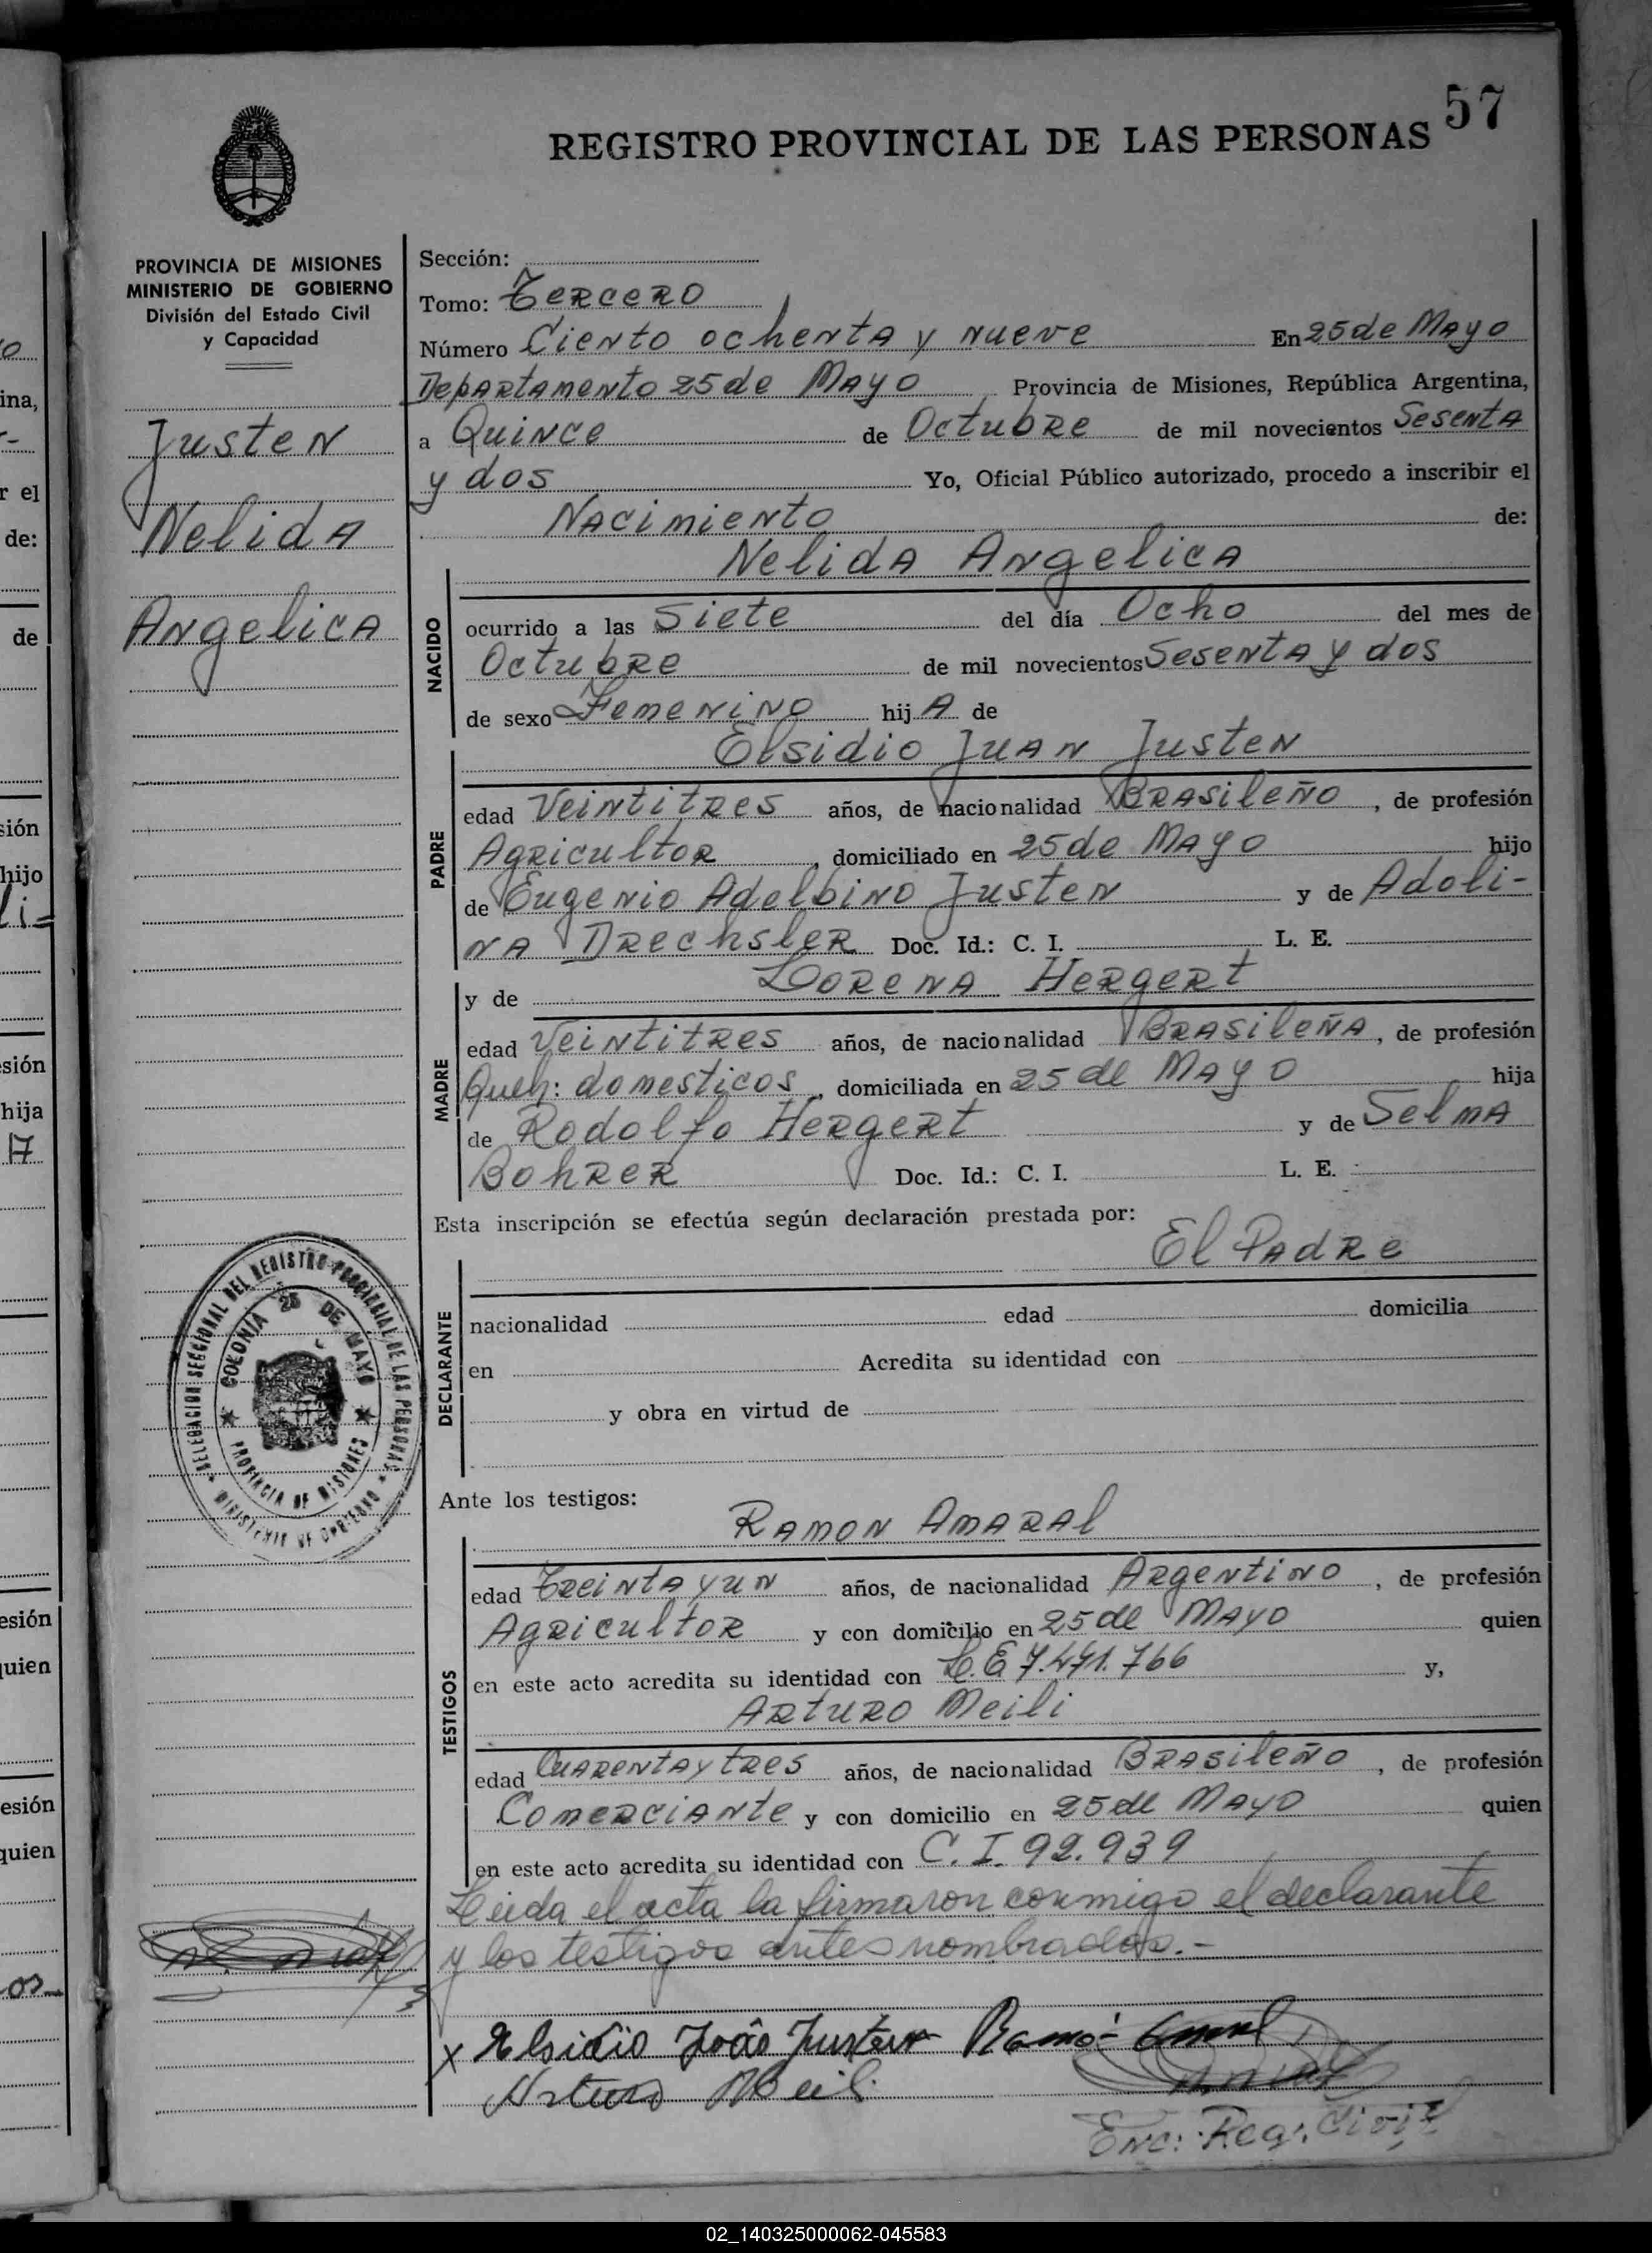 57
REGISTRO PROVINCIAL DE LAS PERSONAS
PROVINCIA DE MISIONES
MINISTERIO DE GOBIERNO
División del Estado Civil
y Capacidad
Justen
Nelida
Angelica
Sección:
Tomo: Tercero
Número Ciento ochenta y nueve En 25 de Mayo
Departamento 25 de Mayo Provincia de Misiones, República Argentina,
a Quince de Octubre de mil novecientos Sesenta
y dos Yo, Oficial Público autorizado, procedo a inscribir el
Nacimiento de:
Nelida Angelica
NACIDO
ocurrido a las Siete del día Ocho del mes de
Octubre de mil novecientos Sesenta y dos
de sexo Femenino hij A de
Elsidio Juan Justen
PADRE
edad Veintitres años, de nacionalidad Brasileño, de profesión
Agricultor, domiciliado en 25 de Mayo hijo
de Eugenio Adelbino Justen y de Adoli-
na Drechsler Doc. Id.: C. I. L. E.
y de Lorena Hergert
MADRE
edad Veintitres años, de nacionalidad Brasileña, de profesión
Queh: domesticos, domiciliada en 25 de Mayo hija
de Rodolfo Hergert y de Selma
Bohrer Doc. Id.: C. I. L. E.
Esta inscripción se efectúa según declaración prestada por:
El Padre
DECLARANTE
nacionalidad edad domicilia
en Acredita su identidad con
y obra en virtud de
Ante los testigos:
Ramon Amaral
TESTIGOS
edad Treinta y un años, de nacionalidad Argentino, de profesión
Agricultor y con domicilio en 25 de Mayo quien
en este acto acredita su identidad con L.E 7.471.766 y,
Arturo Meili
edad Cuarenta y tres años, de nacionalidad Brasileño, de profesión
Comerciante y con domicilio en 25 de Mayo quien
en este acto acredita su identidad con C. I. 92.939
Leida el acta la firmaron conmigo el declarante
y los testigos antes nombrados.-
x Elsidio João Justen Ramó
Arturo Meili
Enc: Reg. Civil
DELEGACION SECCIONAL DEL REGISTRO PROVINCIAL DE LAS PERSONAS
MINISTERIO DE GOBIERNO
COLONIA 25 DE MAYO
PROVINCIA DE MISIONES
02_140325000062-045583